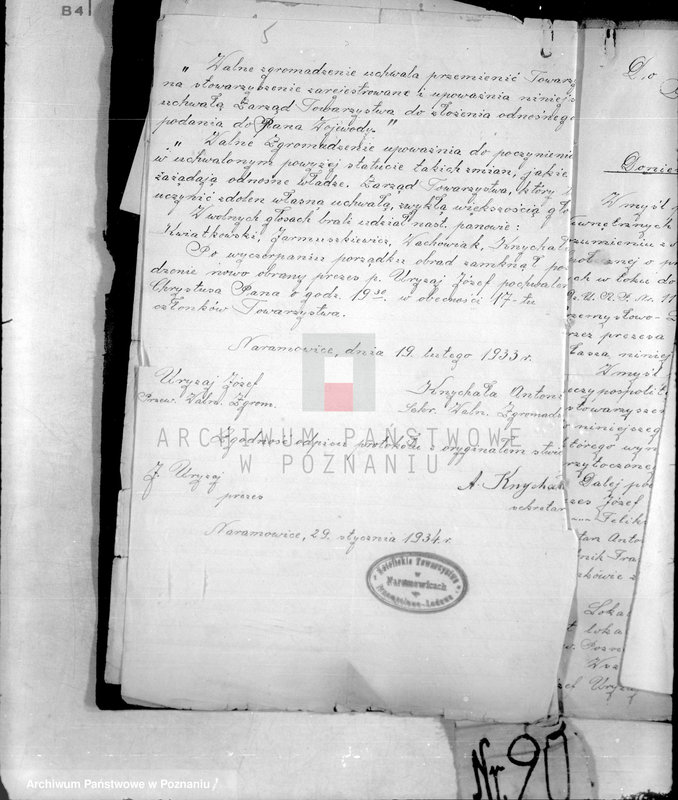 B4
5
„Walne zgromadzenie uchwala przemienić Towarz
na stowarzyszenie zarejestrowane i upoważnia niniejs
uchwałą Zarząd Towarzystwa do złożenia odnośnego
podania do Pana Wojewody."
„Walne Zgromadzenie upoważnia do poczynienia
w uchwalonym powyżej statucie takich zmian, jakie
zażądają odnośne władze. Zarząd Towarzystwa, który
uczynić zdoła własną uchwałą, zwykłą większością gło
W wolnych głosach brali udział nast. panowie:
Kwiatkowski, Jarmuszkiewicz, Wachowiak, Knychał
Po wyczerpaniu porządku obrad zamknął pos
dzenie nowo obrany prezes p. Uryzaj Józef pochwalen
Chrystusa Pana o godz. 19³⁰ w obecności 17-tu
członków Towarzystwa.
Naramowice, dnia 19 lutego 1933 r.
Uryzaj Józef
Przew. Waln. Zgrom.
Knychała Antoni
Sekr. Waln. Zgromadz
Zgodność odpisu protokołu z oryginałem stwie
J. Uryzaj
prezes
A. Knychał
sekretar
Naramowice, 29. stycznia 1934 r.
Katolickie Towarzystwo
w
Naramowicach
Do
Donies
W myśl
ewnętrznych
zumieniu z
ych w roku do
Dz. U. R. P. Nr. 11
zemysłowo-
rzez prezesa
łasza niniej
W myśl
eczypospolit
stowarzyszen
niniejszeg
którego wym
rzytoczoneg
Dalej po
zes Józef
Felik
tan Anto
dnik Fra
Loka
loka
Pozn
zef Uryzaj
Nr 90
ARCHIWUM PAŃSTWOWE
W POZNANIU
Archiwum Państwowe w Poznaniu /